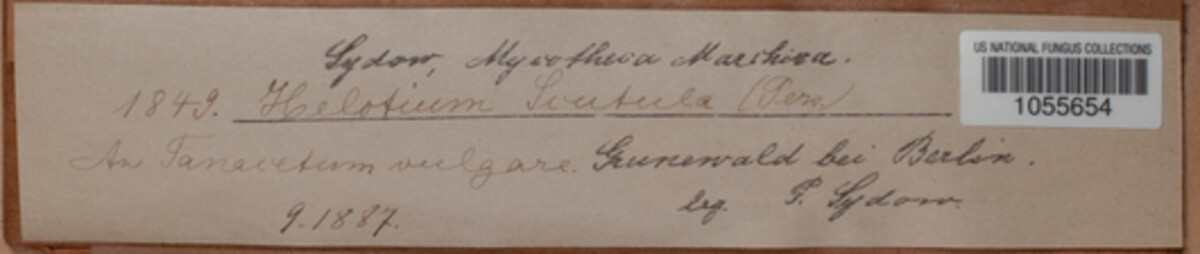 Sydow, Mycotheca Marchica.
US NATIONAL FUNGUS COLLECTIONS
1055654
1849. Helotium Scutula (Pers)
An Tanacetum vulgare. Grunewald bei Berlin.
leg. P. Sydow.
9.1887.